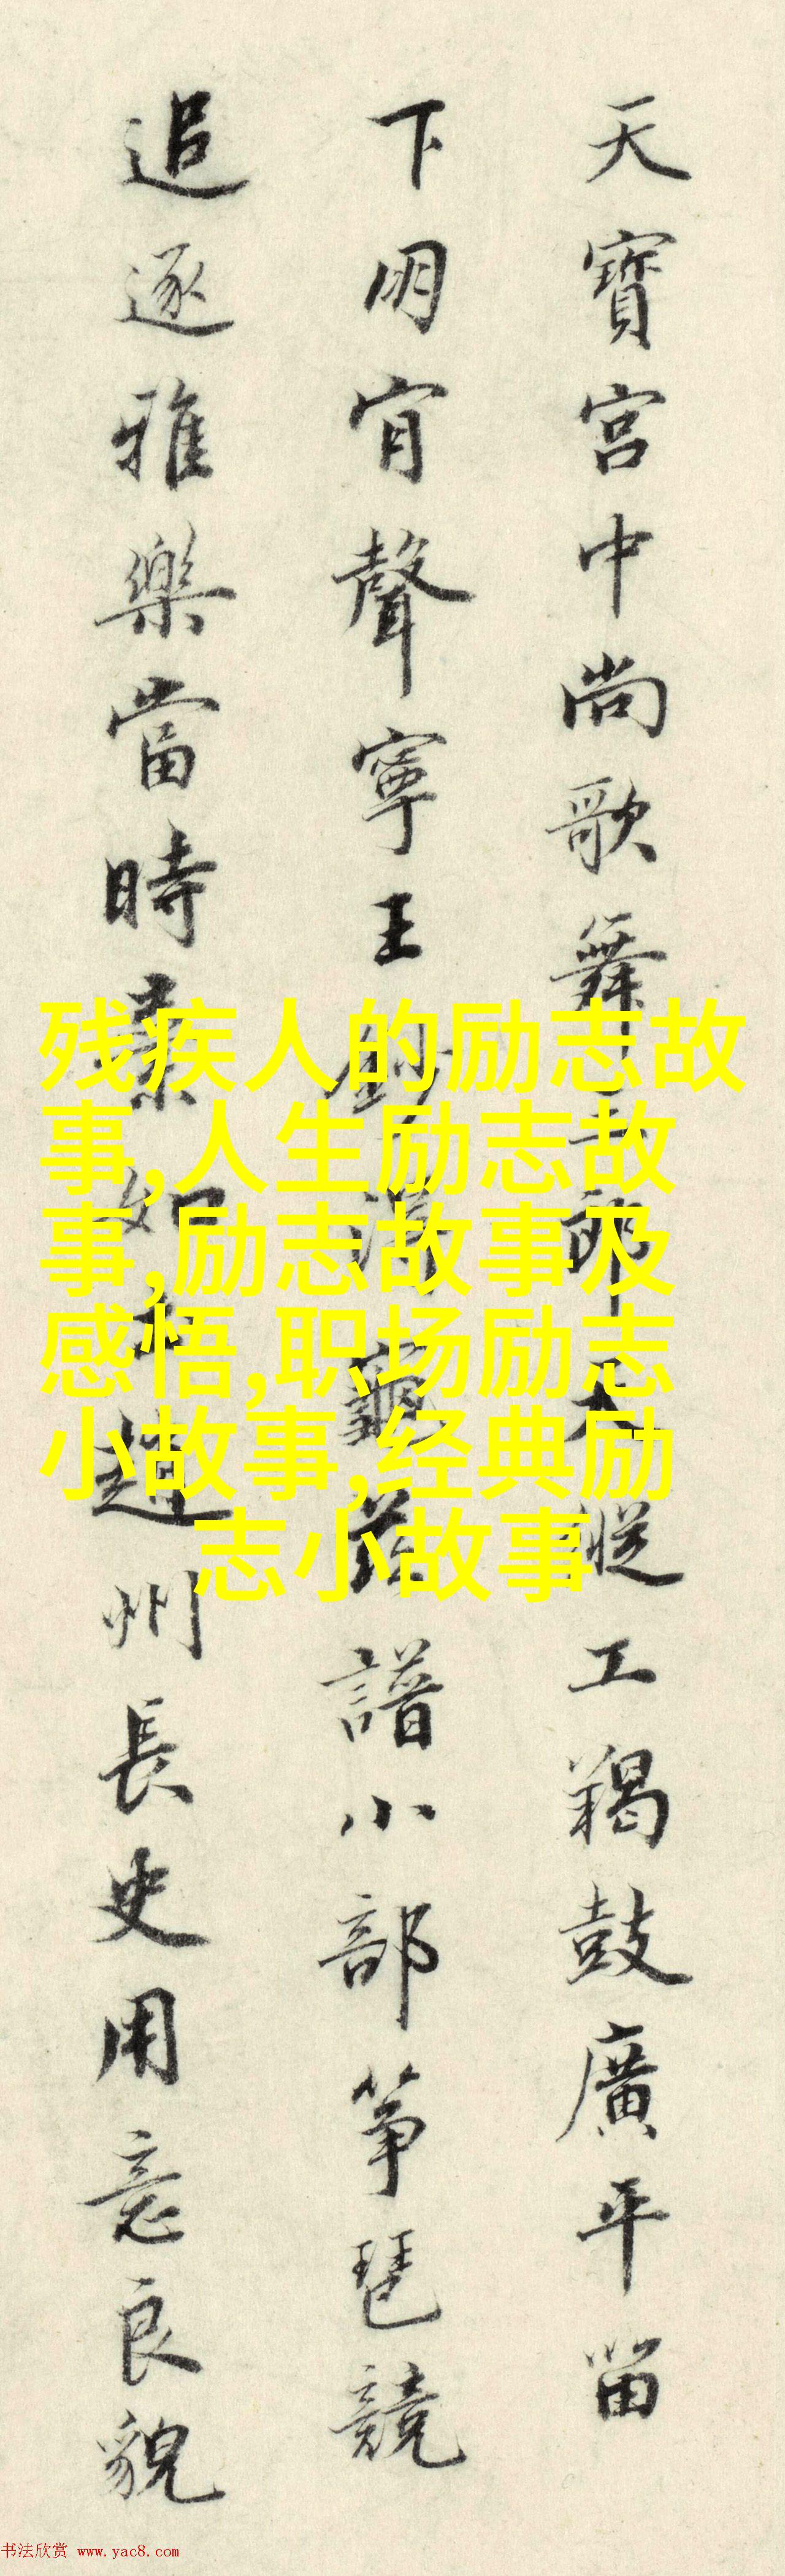 天寶宮中尚歌舞
工羯鼓廣平留
下明宵聲寧王
譜小部箏琶競
追逐雅樂當時
趙州長史用意良貌
残疾人的励志故
事,人生励志故
事,励志故事及
感悟,职场励志
小故事,经典励
志小故事
书法欣赏 www.yac8.com